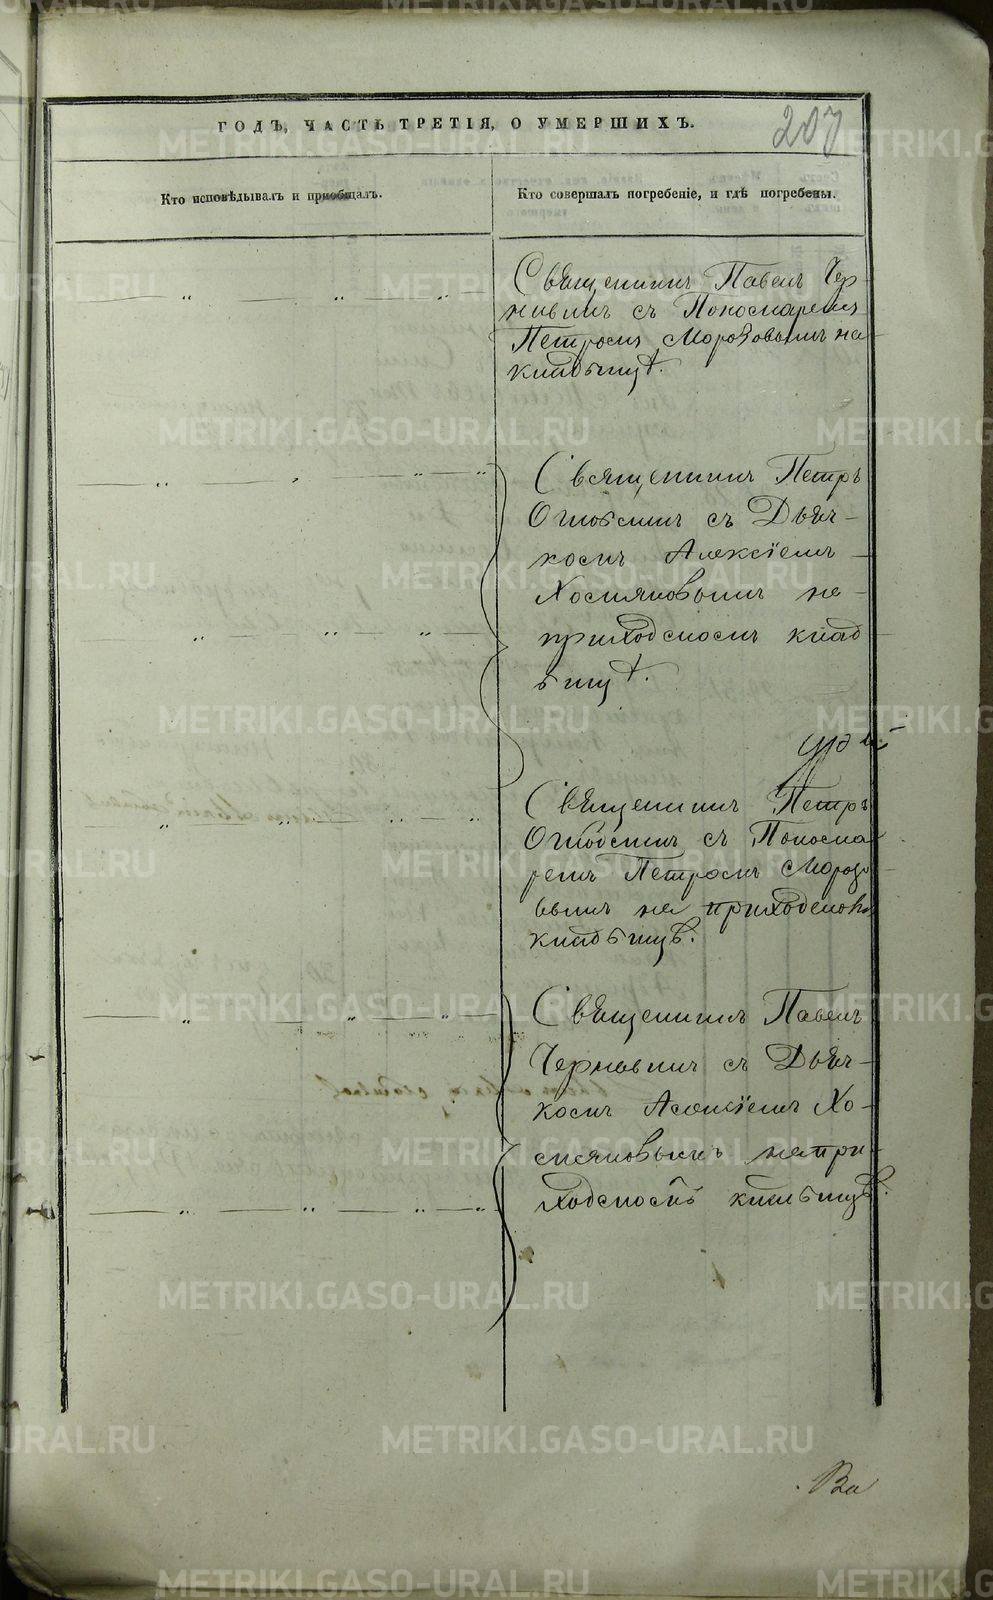 207
ГОДЪ, ЧАСТЬ ТРЕТІЯ, О УМЕРШИХЪ.
Кто исповѣдывалъ и приобщалъ.
Кто совершалъ погребеніе, и гдѣ погребены.
Священникъ Павелъ Чер-
навинъ съ Пономаремъ
Петромъ Морозовымъ на
кладбищѣ.
Священникъ Петръ
съ Дьяч-
комъ Алексіемъ
Хомяковымъ на
приходскомъ клад
бищѣ.
Священникъ Петръ
съ Понома
ремъ Петромъ Морозо
вымъ на приходскомъ
кладбищѣ.
Священникъ Павелъ
Чернавинъ съ Дьяч-
комъ Алексіемъ Хо-
мяковымъ на при-
ходскомъ кладбищѣ.
Ва
METRIKI.GASO-URAL.RU